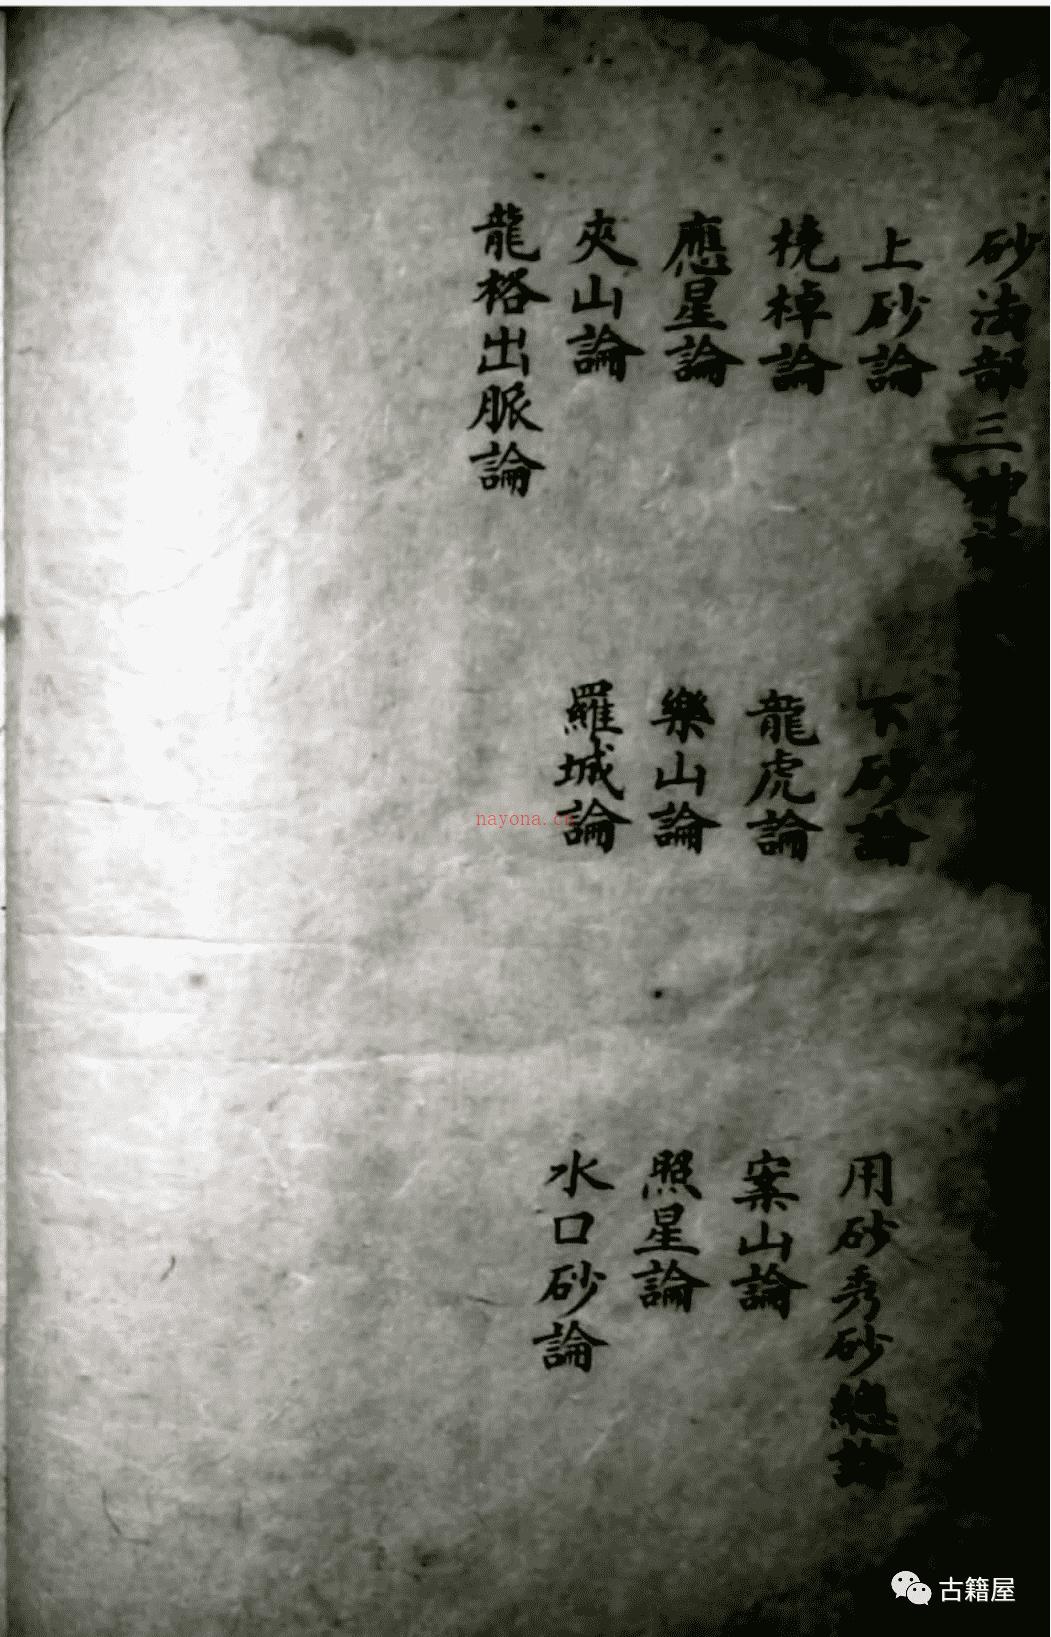 砂法部三
上砂論 下砂論 用砂秀砂總論
桡棹論 龍虎論 案山論
應星論 樂山論 照星論
夾山論 羅城論 水口砂論
龍格出脈論
nayona.cn
古籍屋